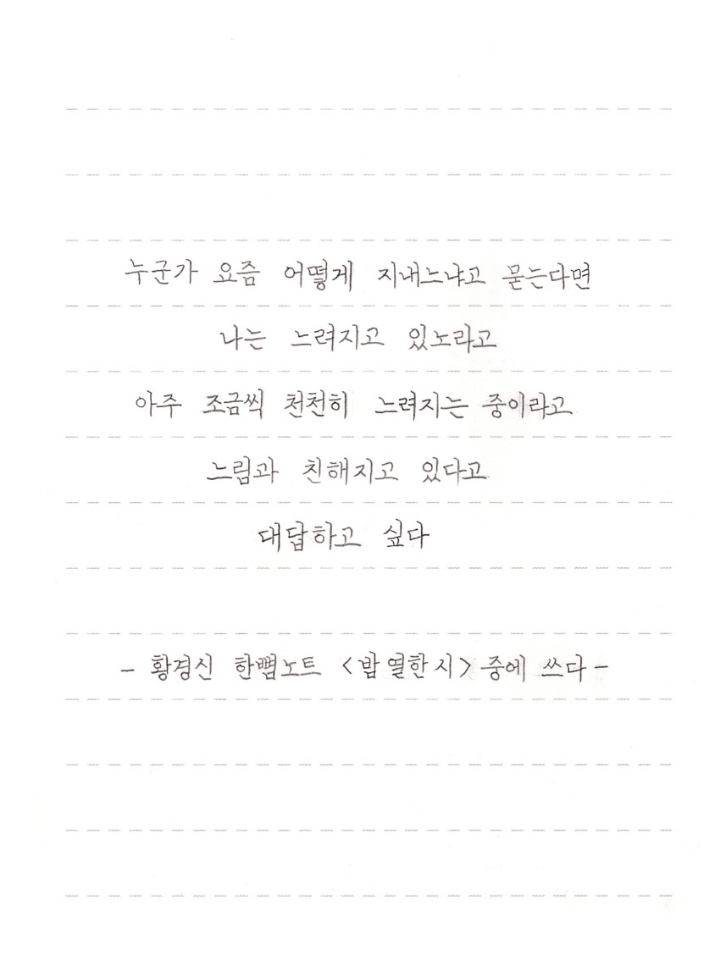 누군가 요즘 어떻게 지내느냐고 묻는다면
나는 느려지고 있노라고
아주 조금씩 천천히 느려지는 중이라고
느림과 친해지고 있다고
대답하고 싶다
- 황경신 한뼘노트 <밤 열한 시> 중에 쓰다 -